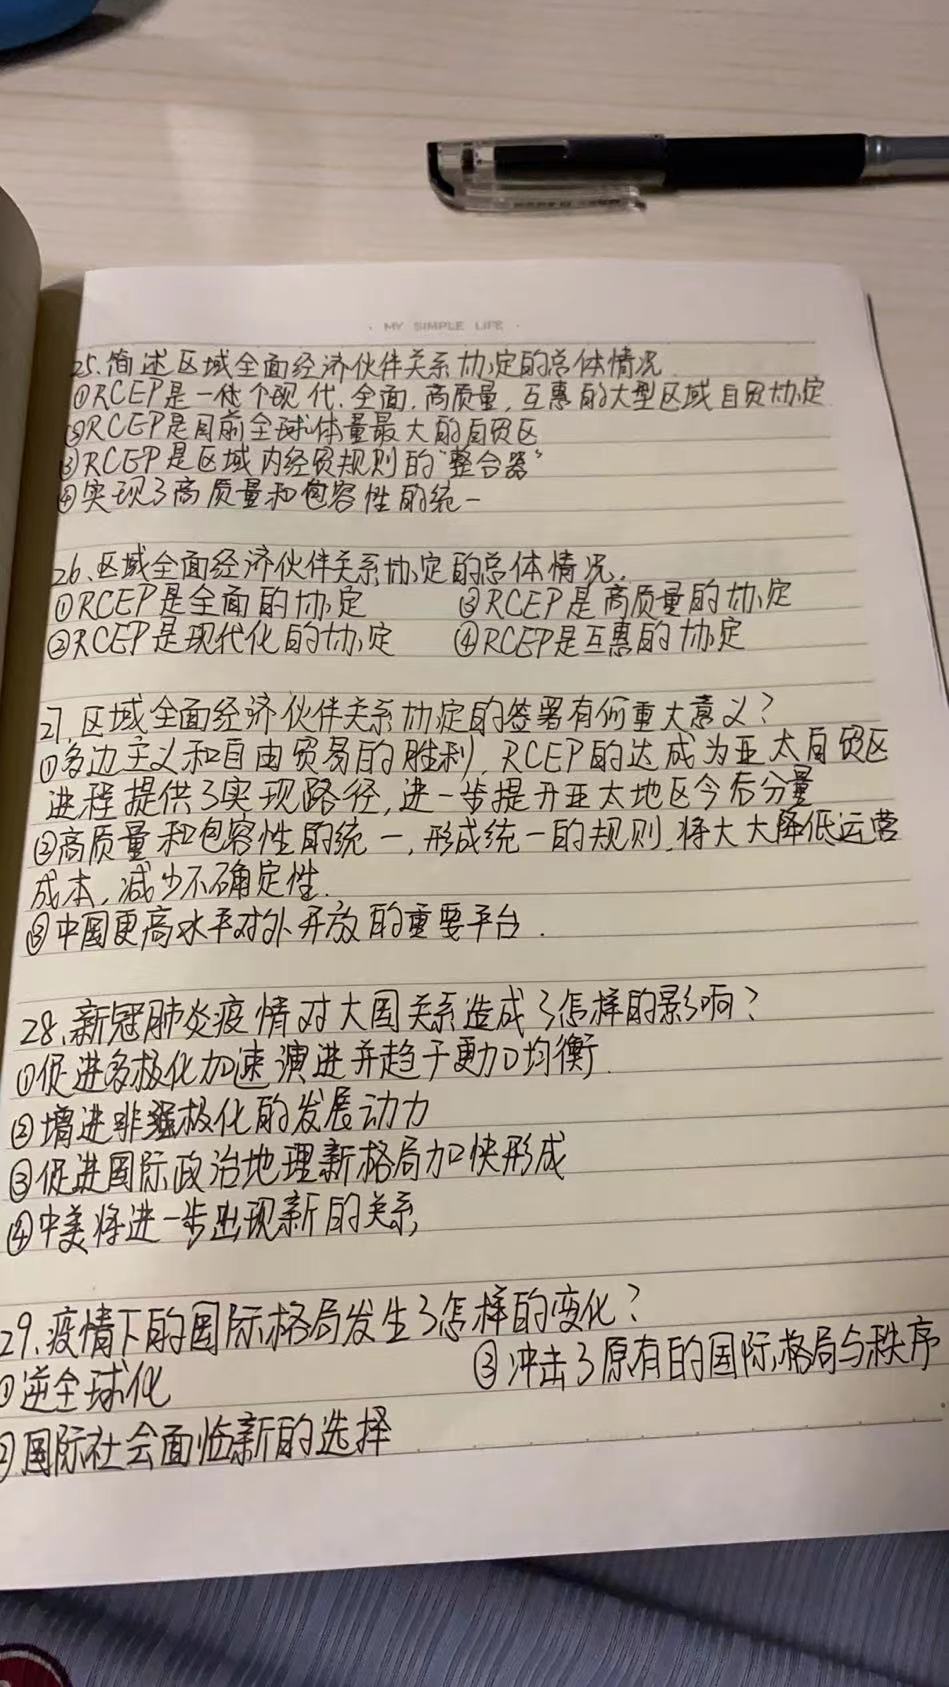 · MY SIMPLE LIFE ·
25.简述区域全面经济伙伴关系协定的总体情况.
①RCEP是一个现代、全面,高质量,互惠的大型区域自贸协定
②RCEP是目前全球体量最大的自贸区
③RCEP是区域内经贸规则的“整合器”
④实现了高质量和包容性的统一
26、区域全面经济伙伴关系协定的总体情况.
①RCEP是全面的协定 ③RCEP是高质量的协定
②RCEP是现代化的协定 ④RCEP是互惠的协定
27.区域全面经济伙伴关系协定的签署有何重大意义?
①多边主义和自由贸易的胜利,RCEP的达成为亚太自贸区
进程提供了实现路径,进一步提升亚太地区今后分量
②高质量和包容性的统一,形成统一的规则,将大大降低运营
成本,减少不确定性.
③中国更高水平对外开放的重要平台.
28、新冠肺炎疫情对大国关系造成了怎样的影响?
①促进多极化加速演进并趋于更加均衡.
②增进非极化的发展动力
③促进国际政治地理新格局加快形成
④中美将进一步出现新的关系
29.疫情下的国际格局发生了怎样的变化?
①逆全球化 ③冲击了原有的国际格局与秩序
②国际社会面临新的选择